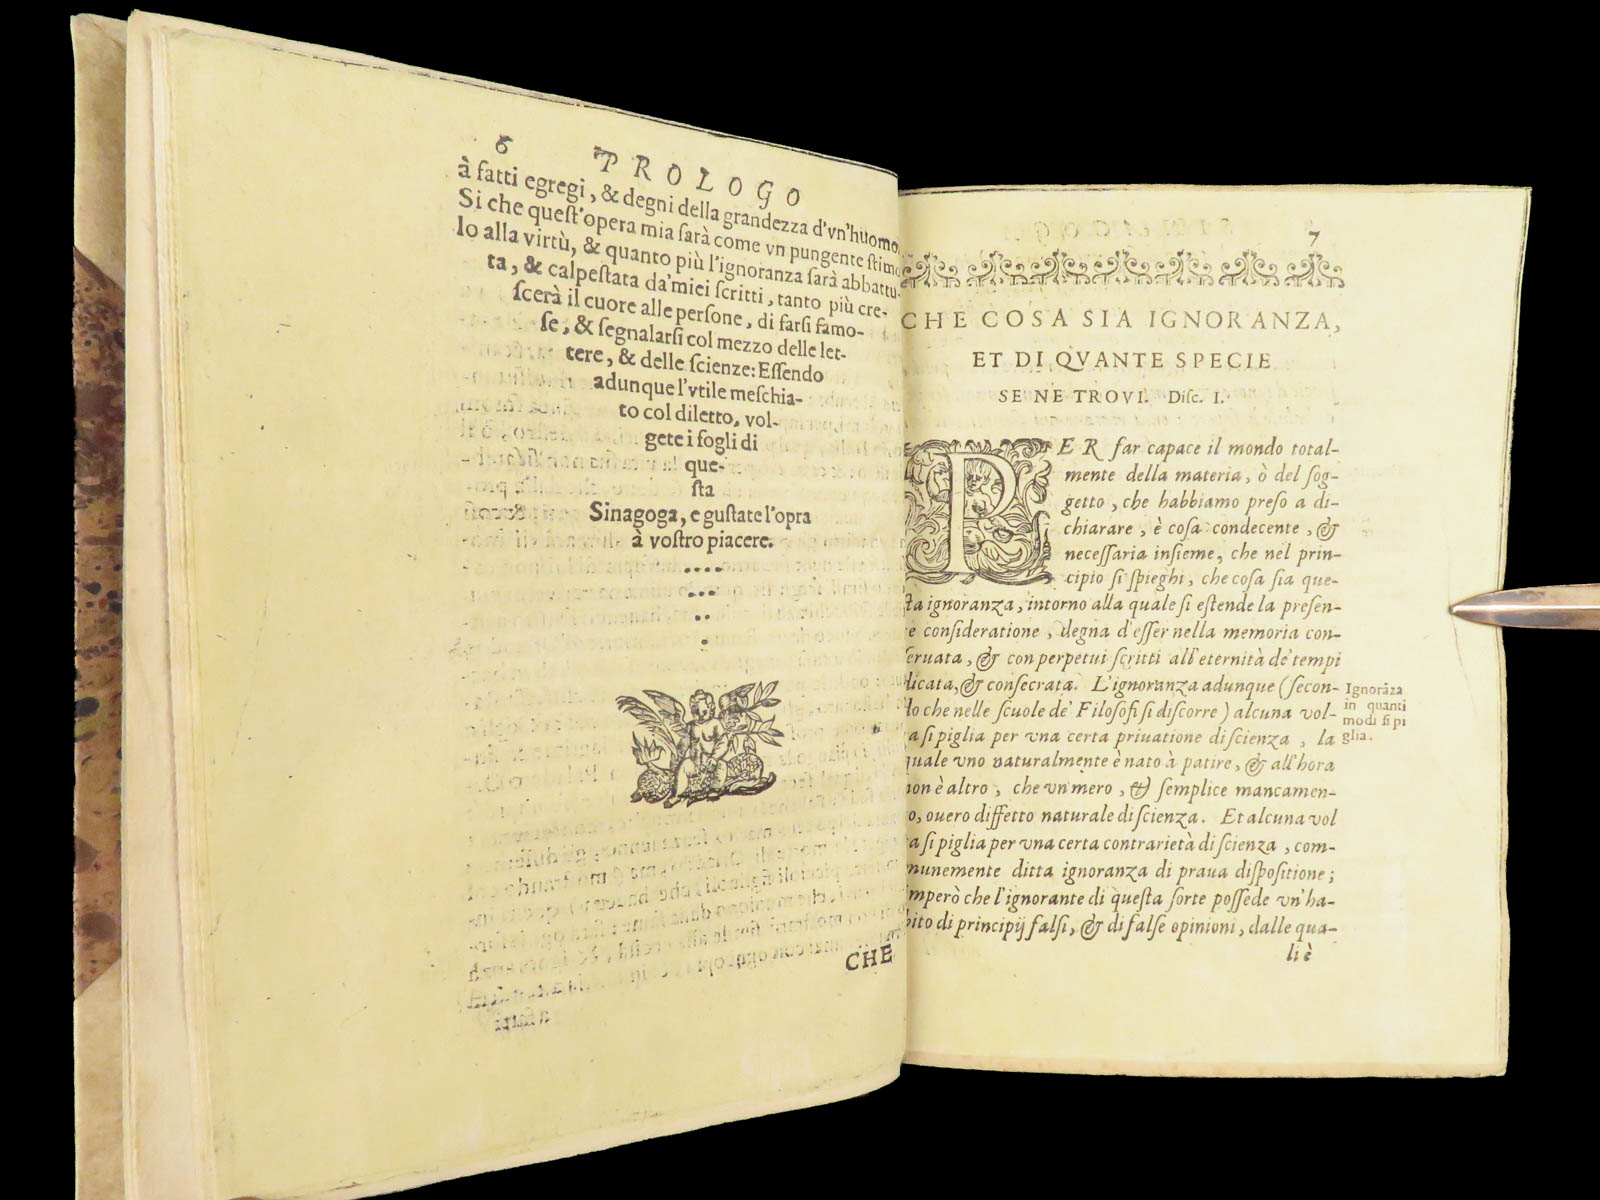 6 PROLOGO
à fatti egregi, & degni della grandezza d'vn'huomo.
Si che quest'opera mia sarà come vn pungente stimo
lo alla virtù, & quanto più l'ignoranza sarà abbattu-
ta, & calpestata da'miei scritti, tanto più cre-
scerà il cuore alle persone, di farsi famo-
se, & segnalarsi col mezzo delle let-
tere, & delle scienze: Essendo
adunque l'vtile meschia-
to col diletto, vol-
gete i fogli di
que-
sta
Sinagoga, e gustate l'opra
à vostro piacere.
CHE
7
CHE COSA SIA IGNORANZA,
ET DI QVANTE SPECIE
SE NE TROVI. Disc. I.
PER far capace il mondo total-
mente della materia, ò del sog-
getto, che habbiamo preso a di-
chiarare, è cosa condecente, &
necessaria insieme, che nel prin-
cipio si spieghi, che cosa sia que-
sta ignoranza, intorno alla quale si estende la presen-
te consideratione, degna d'esser nella memoria con-
seruata, & con perpetui scritti all'eternità de' tempi
dicata, & consecrata. L'ignoranza adunque (secon-
do che nelle scuole de' Filosofi si discorre) alcuna vol-
ta si piglia per vna certa priuatione di scienza, la
quale vno naturalmente è nato à patire, & all'hora
non è altro, che vn mero, & semplice mancamen-
to, ouero diffetto naturale di scienza. Et alcuna vol
ta si piglia per vna certa contrarietà di scienza, com-
munemente ditta ignoranza di praua dispositione;
imperò che l'ignorante di questa sorte possede vn'ha-
bito di principij falsi, & di false opinioni, dalle qua-
li è
Ignorãza
in quanti
modi si pi
glia.